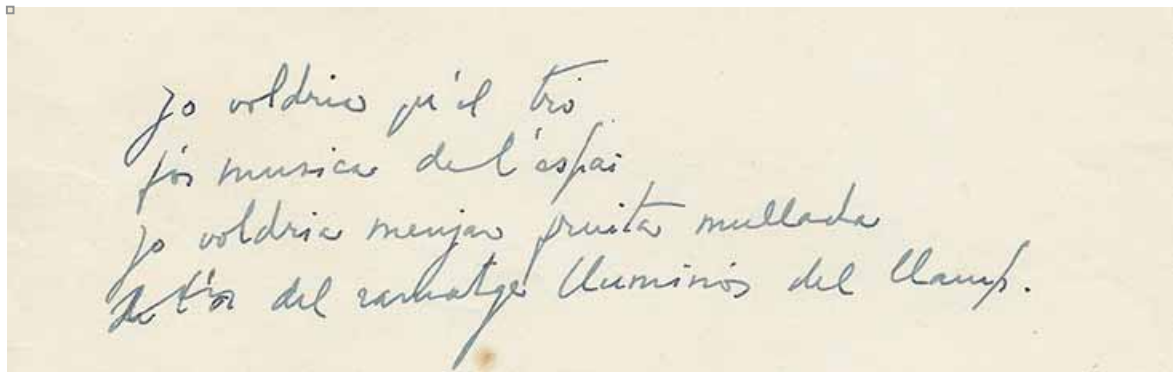 jo voldria qu'el tro
fós musica de l'espai
jo voldria menjar fruita mullada
del ramatge lluminós del llamp.